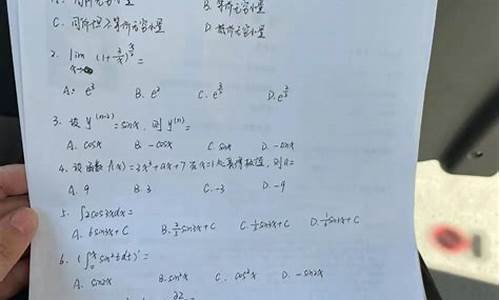 A. 同阶无穷小量 B. 等阶无穷小量
C. 同阶但不等阶无穷小量 D.
2. lim (1+
A. B. C. D.
3. 设 y⁽ⁿ⁻²⁾=sinx, 则 y⁽ⁿ⁾=
A. cosx B. -cosx C. sinx D. -sinx
4. 设函数 f(x)=2x³+ax+7 在x=1处取得极值, 则a=
A. 9 B. 3 C. -3 D. -9
5. ∫2cos3xdx=
A. 6sin3x+C B. ⅔sin3x+C C. ⅓sin3x+C D. ⅙sin3x+C
6. (∫₀ˣ sin²tdt)'=
A. sin2x B. sin²x C. cos²x D. -sin2x